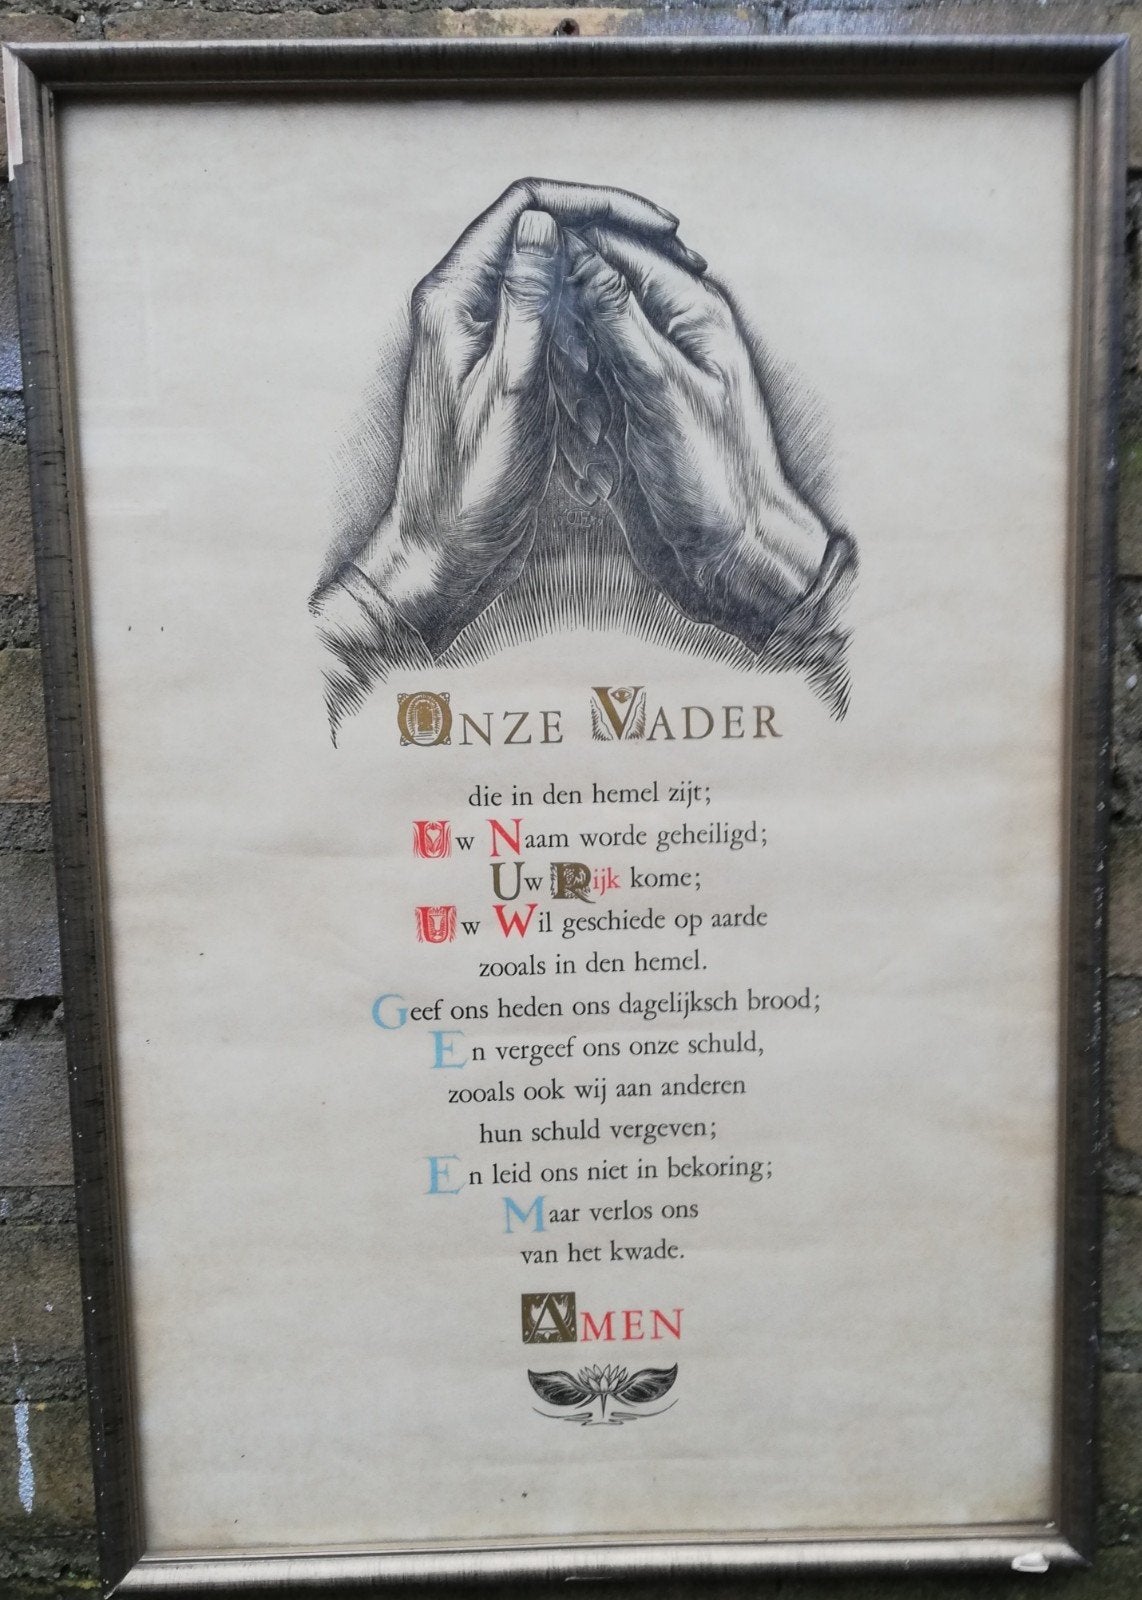 ONZE VADER
die in den hemel zijt;
Uw Naam worde geheiligd;
Uw Rijk kome;
Uw Wil geschiede op aarde
zooals in den hemel.
Geef ons heden ons dagelijksch brood;
En vergeef ons onze schuld,
zooals ook wij aan anderen
hun schuld vergeven;
En leid ons niet in bekoring;
Maar verlos ons
van het kwade.
AMEN